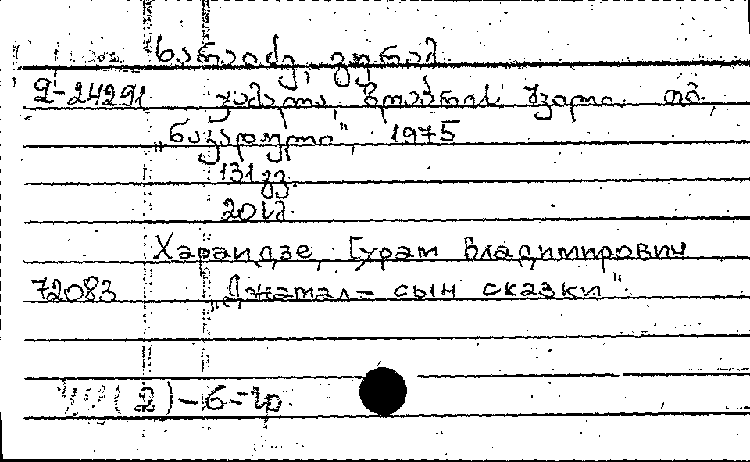 ხარაიძე, გურამ
2-24291 ჯამალი, ზღაპრის შვილი. თბ.,
„ნაკადული", 1975
131 გვ.
20 კ.
Хараидзе, Гурам Владимирович
72083 „Джамал – сын сказки".
(2)-6=2р